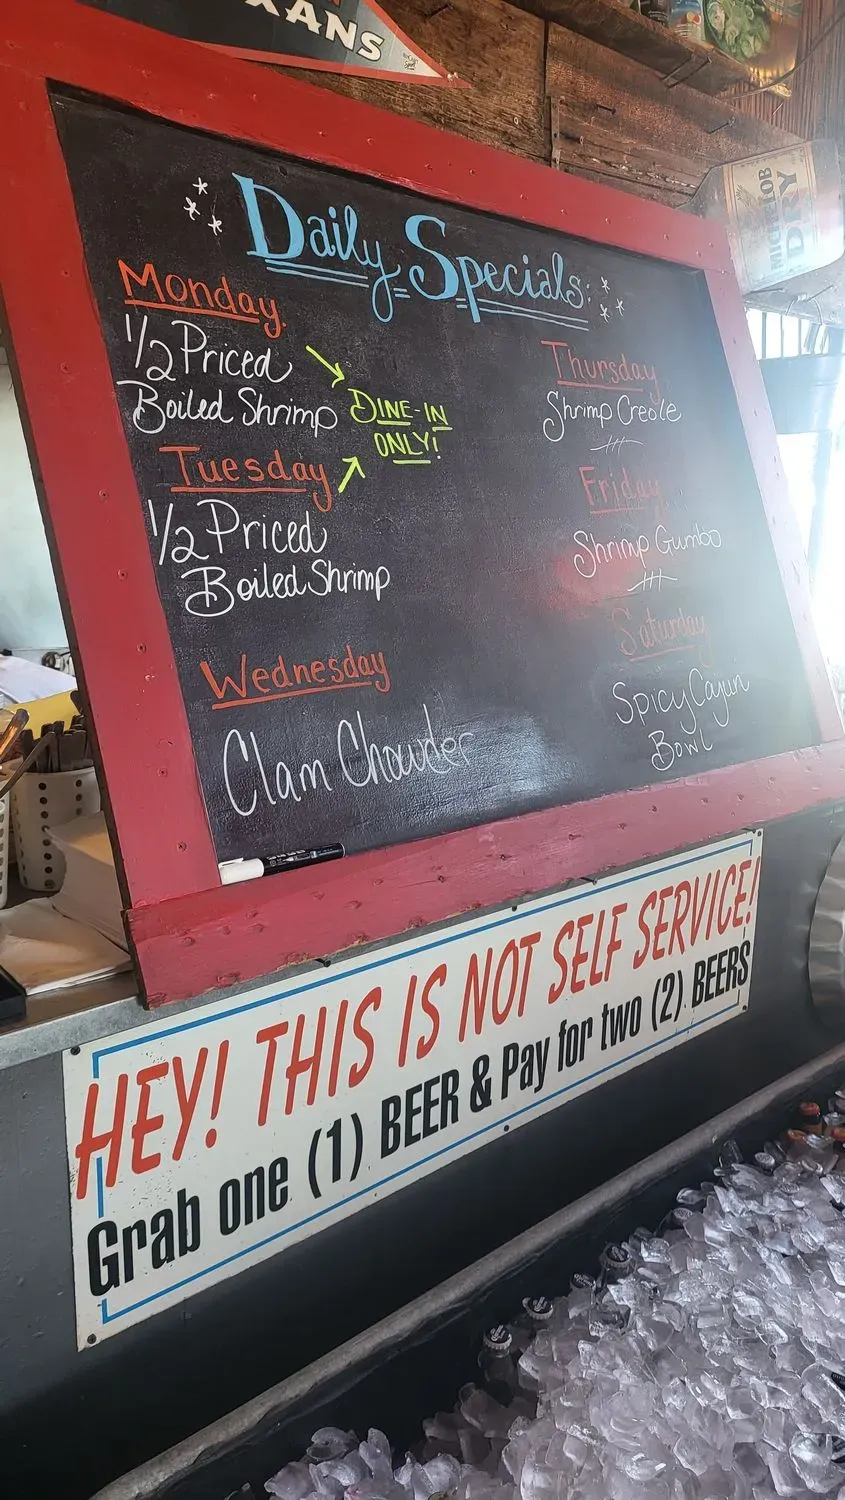 XANS
MICHELOB
DRY
Daily Specials:
Monday.
1/2 Priced
Boiled Shrimp
DINE-IN
ONLY!
Tuesday
1/2 Priced
Boiled Shrimp
Wednesday
Clam Chowder
Thursday
Shrimp Creole
Friday
Shrimp Gumbo
Saturday
Spicy Cajun
Bowl
HEY! THIS IS NOT SELF SERVICE!
Grab one (1) BEER & Pay for two (2) BEERS